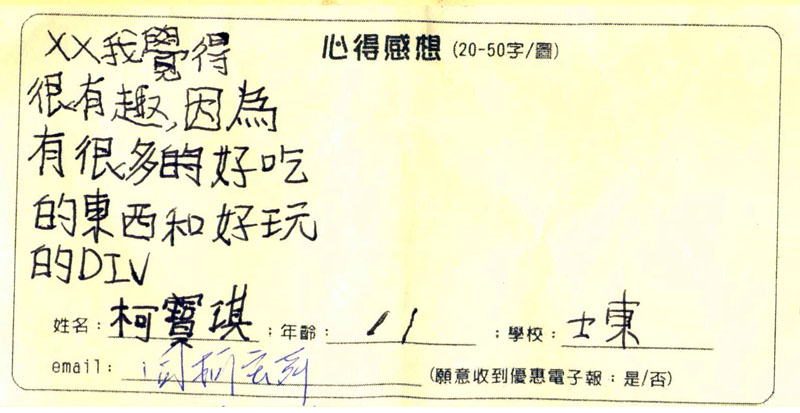 心得感想 (20-50字/圖)
XX我覺得
很有趣,因為
有很多的好吃
的東西和好玩
的DIV
姓名: 柯寶琪 ;年齡: 11 ;學校: 士東
email: 同柯 (願意收到優惠電子報:是/否)